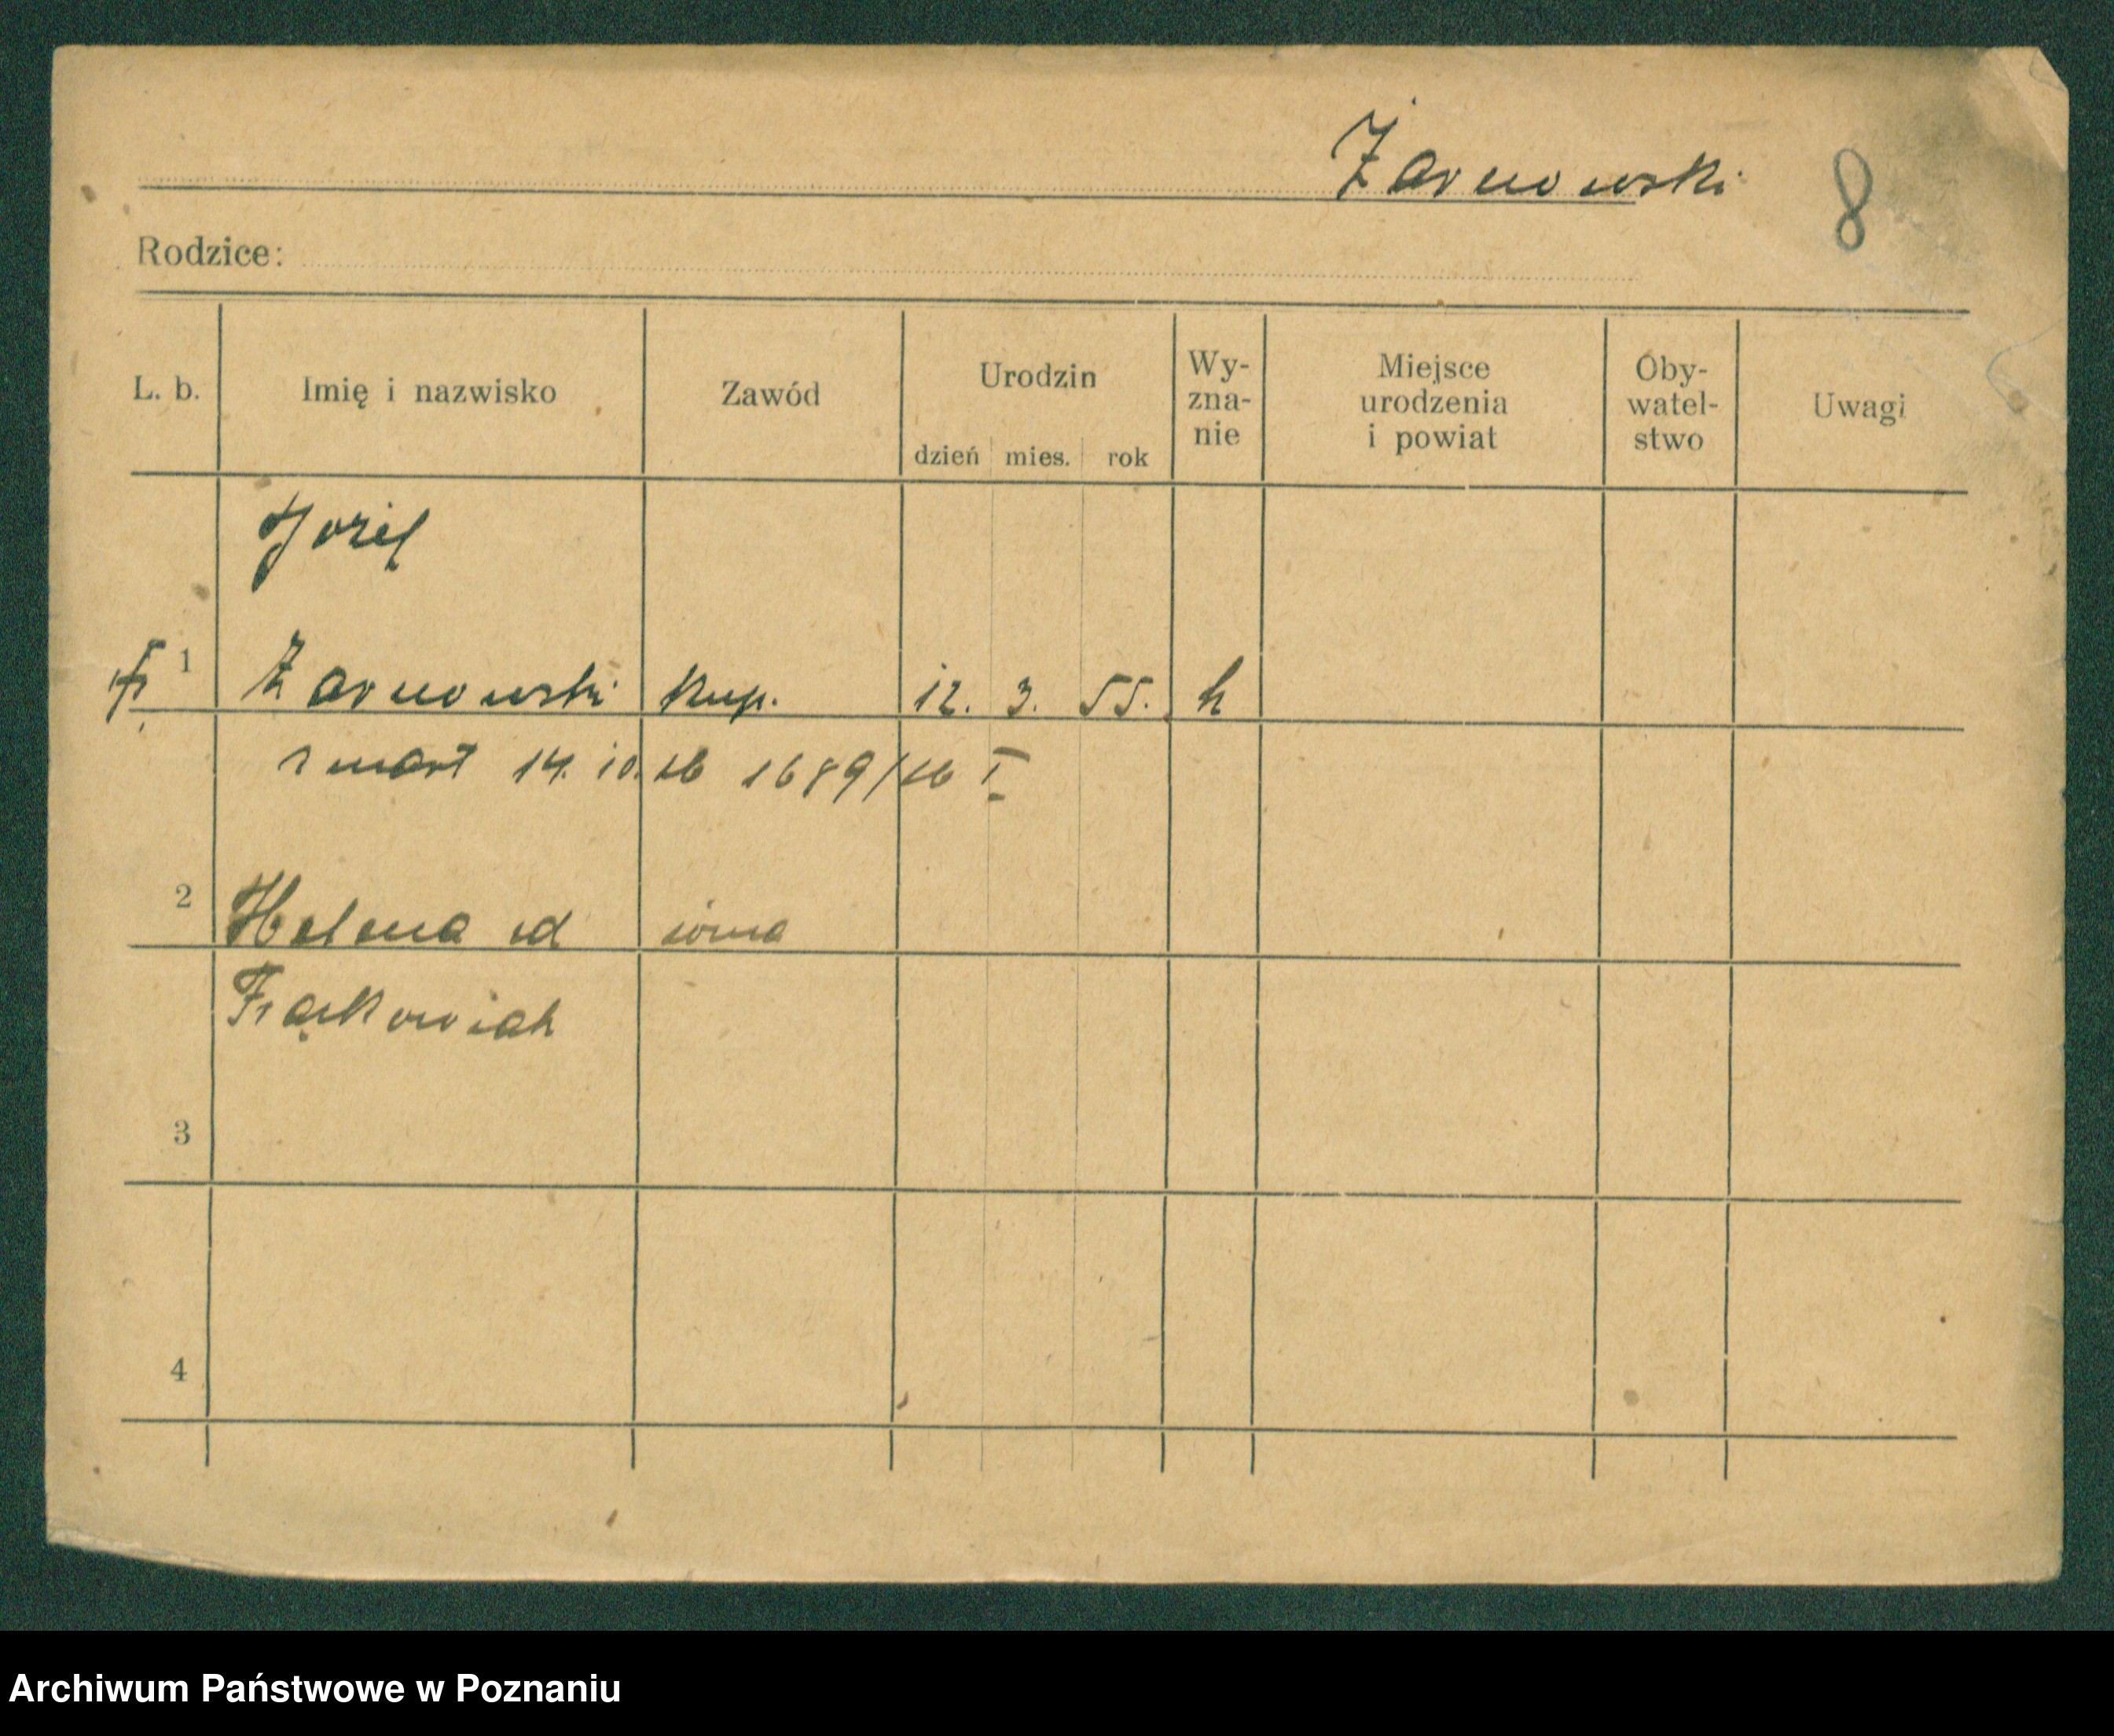 Żarnowski
8
Rodzice:
L. b. Imię i nazwisko Zawód Urodzin Wy- Miejsce Oby- Uwagi
zna- urodzenia watel-
nie i powiat stwo
dzień mies. rok
Józef
1 Żarnowski kup. 12. 3. 55. k
zmarł 14. 10. 26 1689/26 I
2 Helena żona
3
4
Archiwum Państwowe w Poznaniu